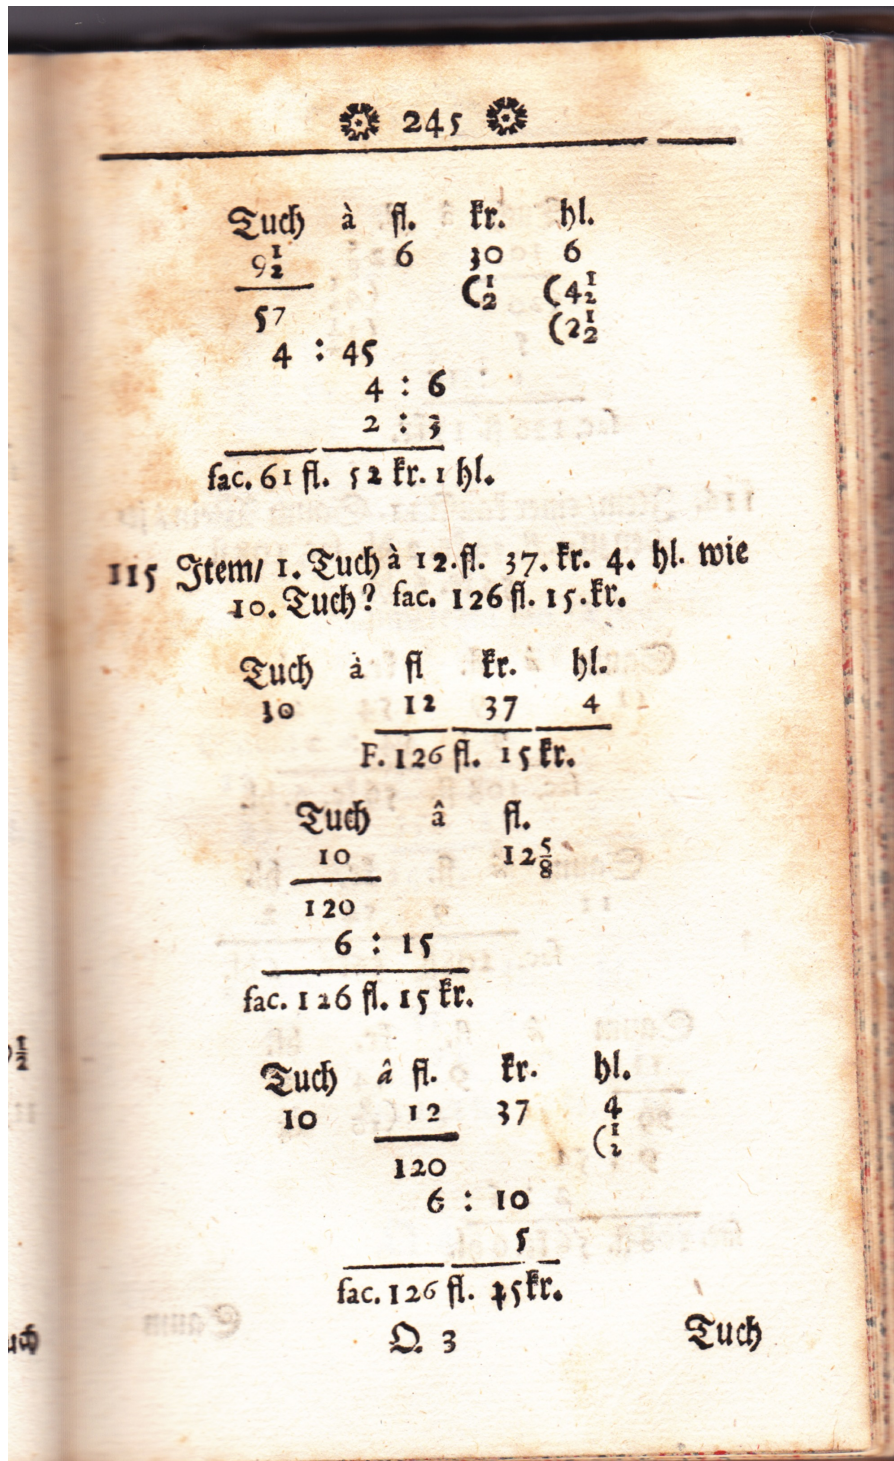 245
Tuch à fl. kr. hl.
9½ 6 30 6
(½ (4½
57 (2½
4 : 45
4 : 6
2 : 3
fac. 61 fl. 52 kr. 1 hl.
115 Item/ 1. Tuch à 12. fl. 37. kr. 4. hl. wie
10. Tuch? fac. 126 fl. 15. kr.
Tuch à fl kr. hl.
10 12 37 4
F. 126 fl. 15 kr.
Tuch â fl.
10 12⅝
120
6 : 15
fac. 126 fl. 15 kr.
Tuch â fl. kr. hl.
10 12 37 4
(½
120
6 : 10
5
fac. 126 fl. 15 kr.
Q. 3 Tuch